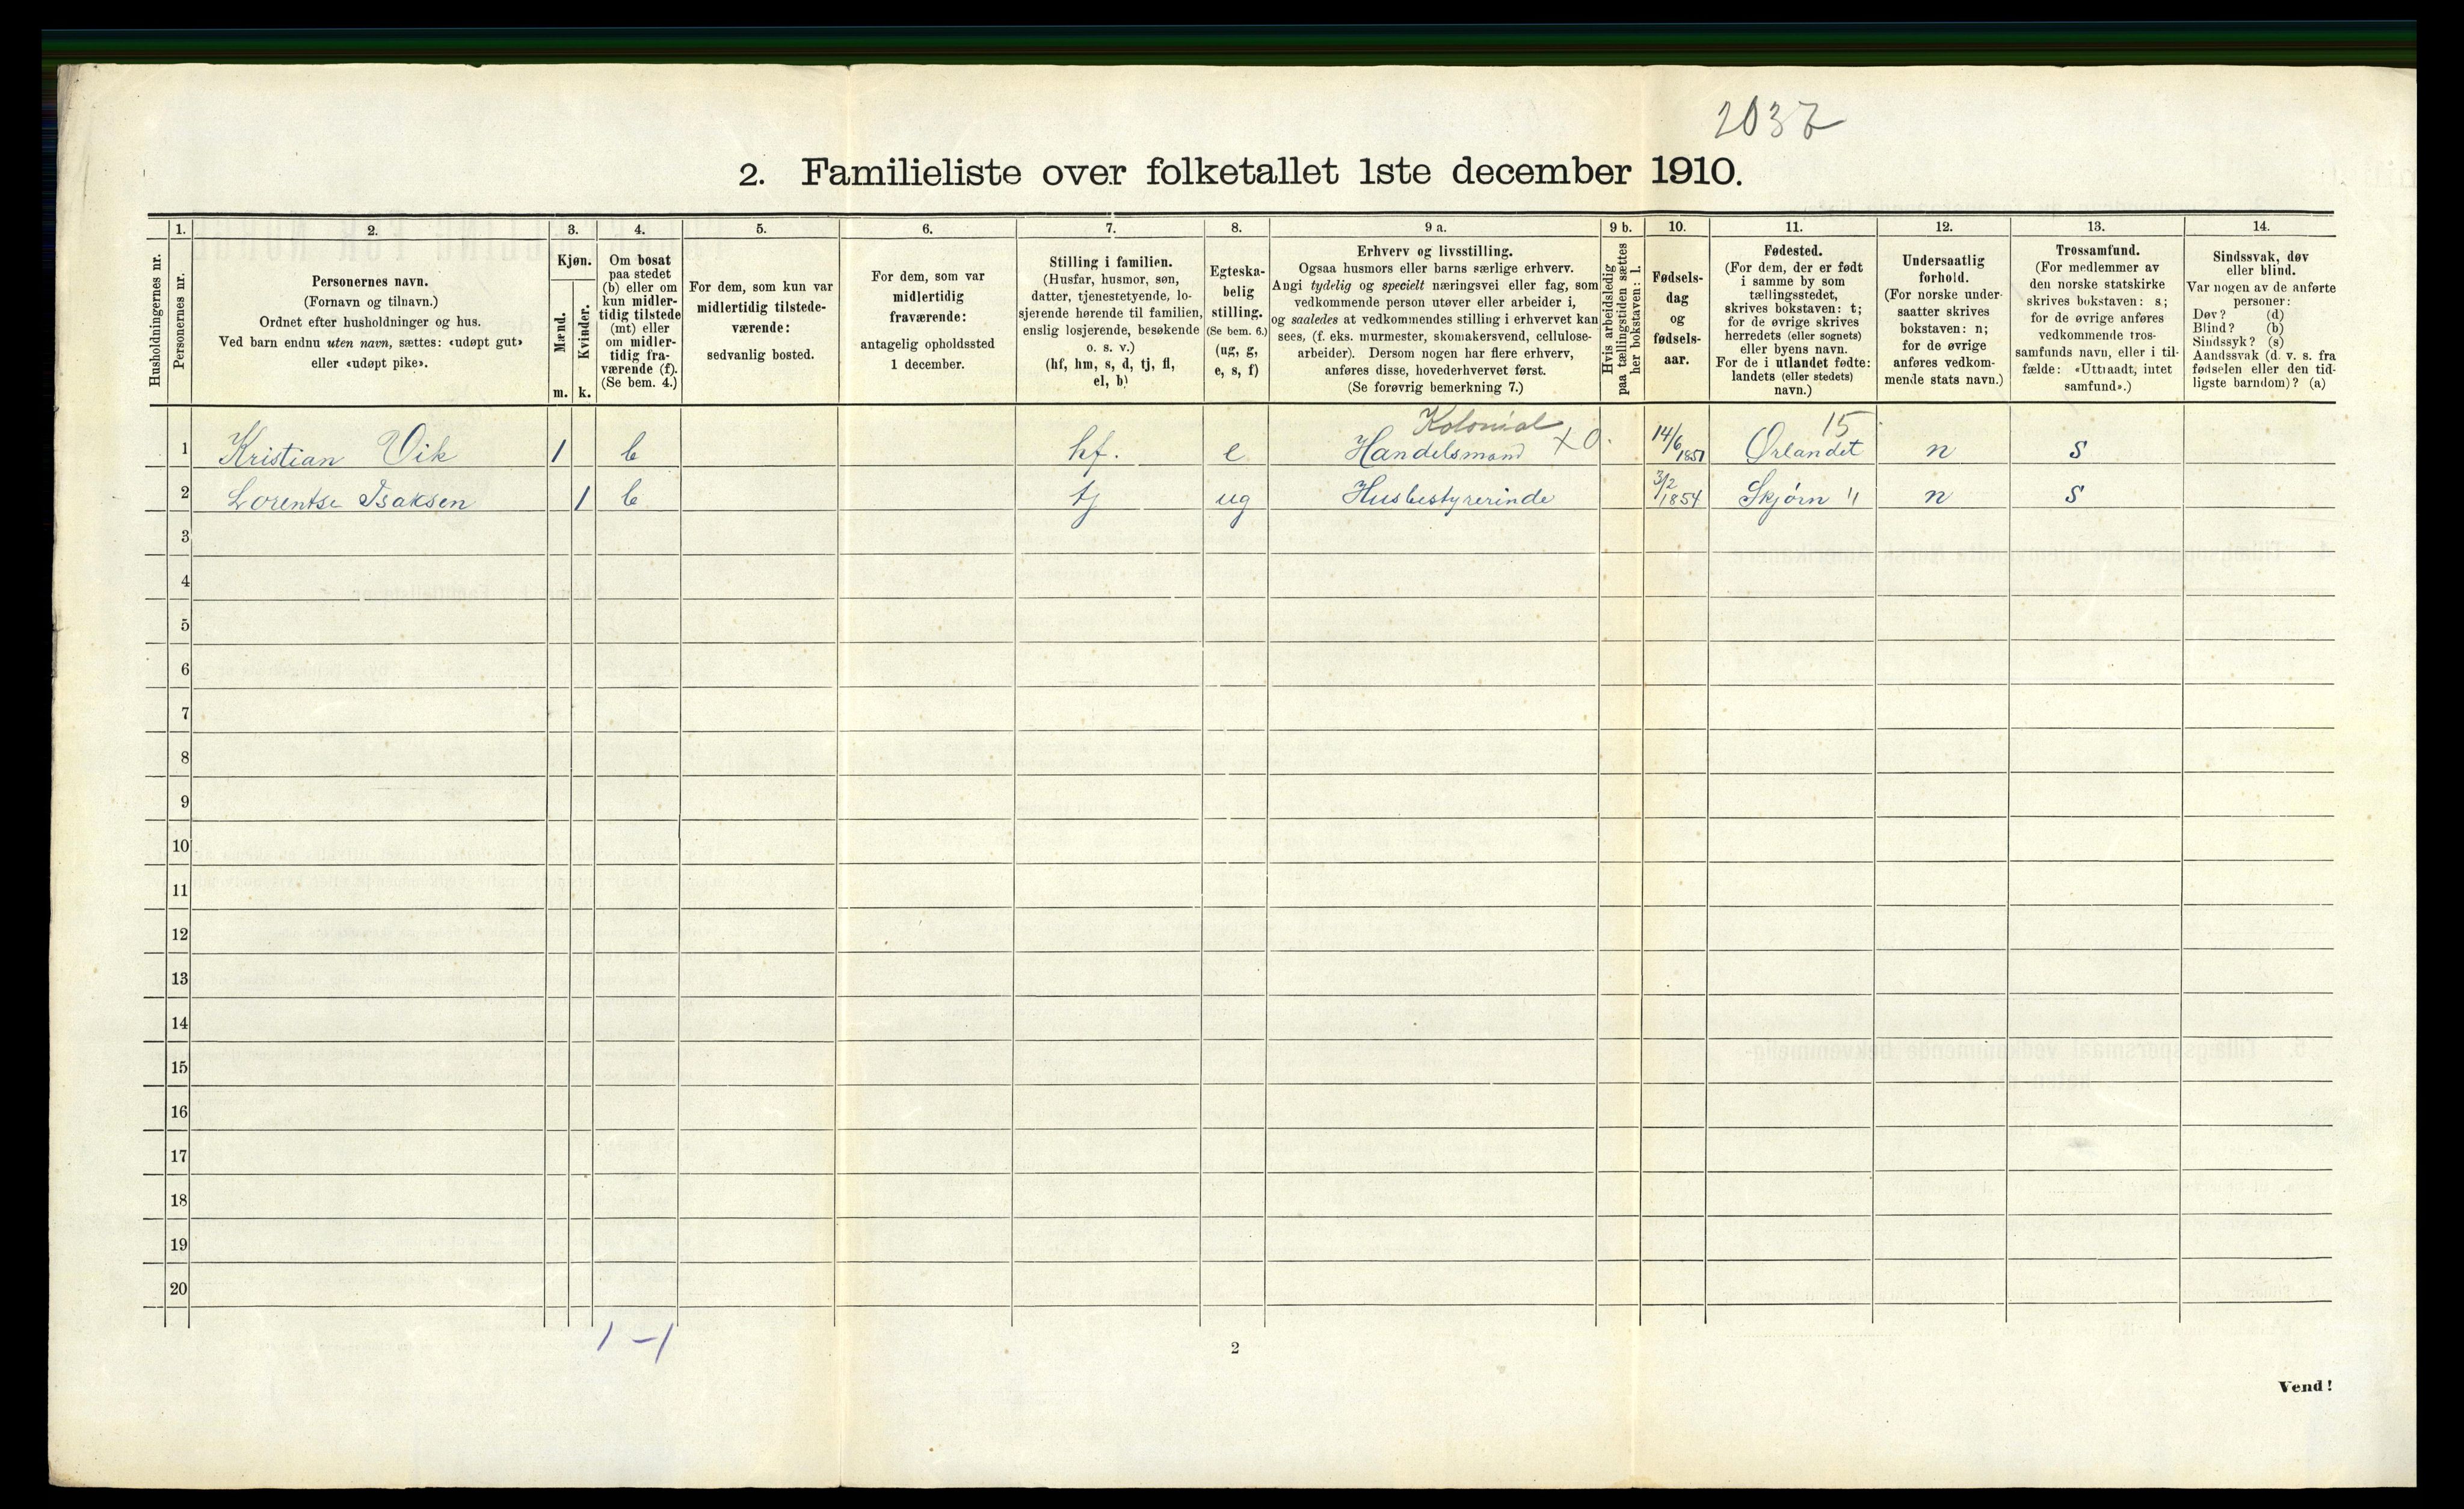 2037
2. Familieliste over folketallet 1ste december 1910.
Husholdningernes nr.
1.
Personernes nr.
2.
Personernes navn.
(Fornavn og tilnavn.)
Ordnet efter husholdninger og hus.
Ved barn endnu uten navn, sættes: «udøpt gut»
eller «udøpt pike».
3.
Kjøn.
Mænd.
m.
Kvinder.
k.
4.
Om bosat
paa stedet
(b) eller om
kun midler-
tidig tilstede
(mt) eller
om midler-
tidig fra-
værende (f).
(Se bem. 4.)
5.
For dem, som kun var
midlertidig tilstede-
værende:
sedvanlig bosted.
6.
For dem, som var
midlertidig
fraværende:
antagelig opholdssted
1 december.
7.
Stilling i familien.
(Husfar, husmor, søn,
datter, tjenestetyende, lo-
sjerende hørende til familien,
enslig losjerende, besøkende
o. s. v.)
(hf, hm, s, d, tj, fl,
el, b)
8.
Egteska-
belig
stilling.
(Se bem. 6.)
(ug, g,
e, s, f)
9 a.
Erhverv og livsstilling.
Ogsaa husmors eller barns særlige erhverv.
Angi tydelig og specielt næringsvei eller fag, som
vedkommende person utøver eller arbeider i,
og saaledes at vedkommendes stilling i erhvervet kan
sees, (f. eks. murmester, skomakersvend, cellulose-
arbeider). Dersom nogen har flere erhverv,
anføres disse, hovederhvervet først.
(Se forøvrig bemerkning 7.)
9 b.
Hvis arbeidsledig
paa tællingstiden sættes
her bokstaven: l.
10.
Fødsels-
dag
og
fødsels-
aar.
11.
Fødested.
(For dem, der er født
i samme by som
tællingsstedet,
skrives bokstaven: t;
for de øvrige skrives
herredets (eller sognets)
eller byens navn.
For de i utlandet fødte:
landets (eller stedets)
navn.)
12.
Undersaatlig
forhold.
(For norske under-
saatter skrives
bokstaven: n;
for de øvrige
anføres vedkom-
mende stats navn.)
13.
Trossamfund.
(For medlemmer av
den norske statskirke
skrives bokstaven: s;
for de øvrige anføres
vedkommende tros-
samfunds navn, eller i til-
fælde: «Uttraadt, intet
samfund».)
14.
Sindssvak, døv
eller blind.
Var nogen av de anførte
personer:
Døv? (d)
Blind? (b)
Sindssyk? (s)
Aandssvak (d. v. s. fra
fødselen eller den tid-
ligste barndom)? (a)
Kolonial 15
1 Kristian Vik 1 b hf. e Handelsmand X0. 14/6 1851 Ørlandet n s
2 Lorentse Isaksen 1 b tj ug Husbestyrerinde 3/2 1854 Skjørn " n s
3
4
5
6
7
8
9
10
11
12
13
14
15
16
17
18
19
20
1-1
2
Vend!